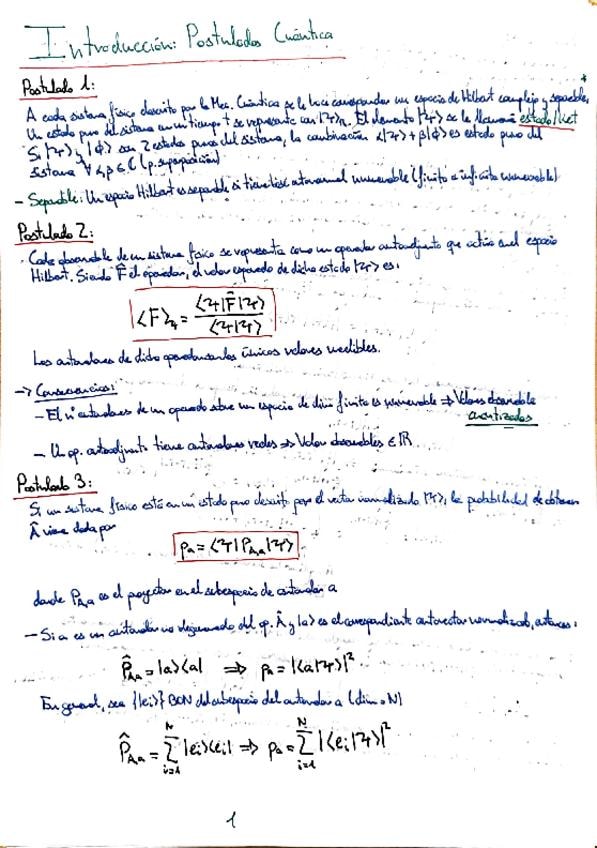 Introducción: Postulados Cuántica
Postulado 1:
A cada sistema físico descrito por la Mec. Cuántica se le hace corresponder un espacio de Hilbert complejo y separable. *
Un estado puro del sistema en un tiempo t se representa con |Ψ>. El elemento |Ψ> se le llamará estado/ket
Si |Ψ> y |ϕ> son 2 estados puros del sistema, la combinación α|Ψ>+β|ϕ> es estado puro del
sistema ∀ α,β ∈ C (p. superposición)
- Separable: Un espacio Hilbert es separable si tiene base numerable (finito o infinito numerable)
Postulado 2:
· Cada observable de un sistema físico se representa como un operador autoadjunto que actúa en el espacio
Hilbert. Siendo F̂ el operador, el valor esperado de dicho estado |Ψ> es:
<F>_Ψ = <Ψ|F̂|Ψ> / <Ψ|Ψ>
Los autovalores de dicho operador son los únicos valores medibles.
-> Consecuencias:
- El nº autovalores de un operador sobre un espacio de dim finita es numerable => Valores observable
cuantizados
- Un op. autoadjunto tiene autovalores reales => Valor observables ∈ R
Postulado 3:
Si un sistema físico está en un estado puro descrito por el vector normalizado |Ψ>, la probabilidad de obtener
Â viene dada por
pₐ = <Ψ|P_A,a|Ψ>
donde P_A,a es el proyector en el subespacio de autovalor a
- Si a es un autovalor no degenerado del op. Â y |a> es el correspondiente autovector normalizado, entonces:
P̂_A,a = |a><a| => pₐ = |<a|Ψ>|²
En general, sea {|eᵢ>} BON del subespacio del autovalor a (dim = N)
P̂_A,a = Σ_{i=1}^{N} |eᵢ><eᵢ| => pₐ = Σ_{i=1}^{N} |<eᵢ|Ψ>|²
1